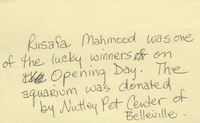 Rusafa Mahmood was one
of the lucky winners on
Opening Day. The
aquarium was donated
by Nutley Pet Center of
Belleville.